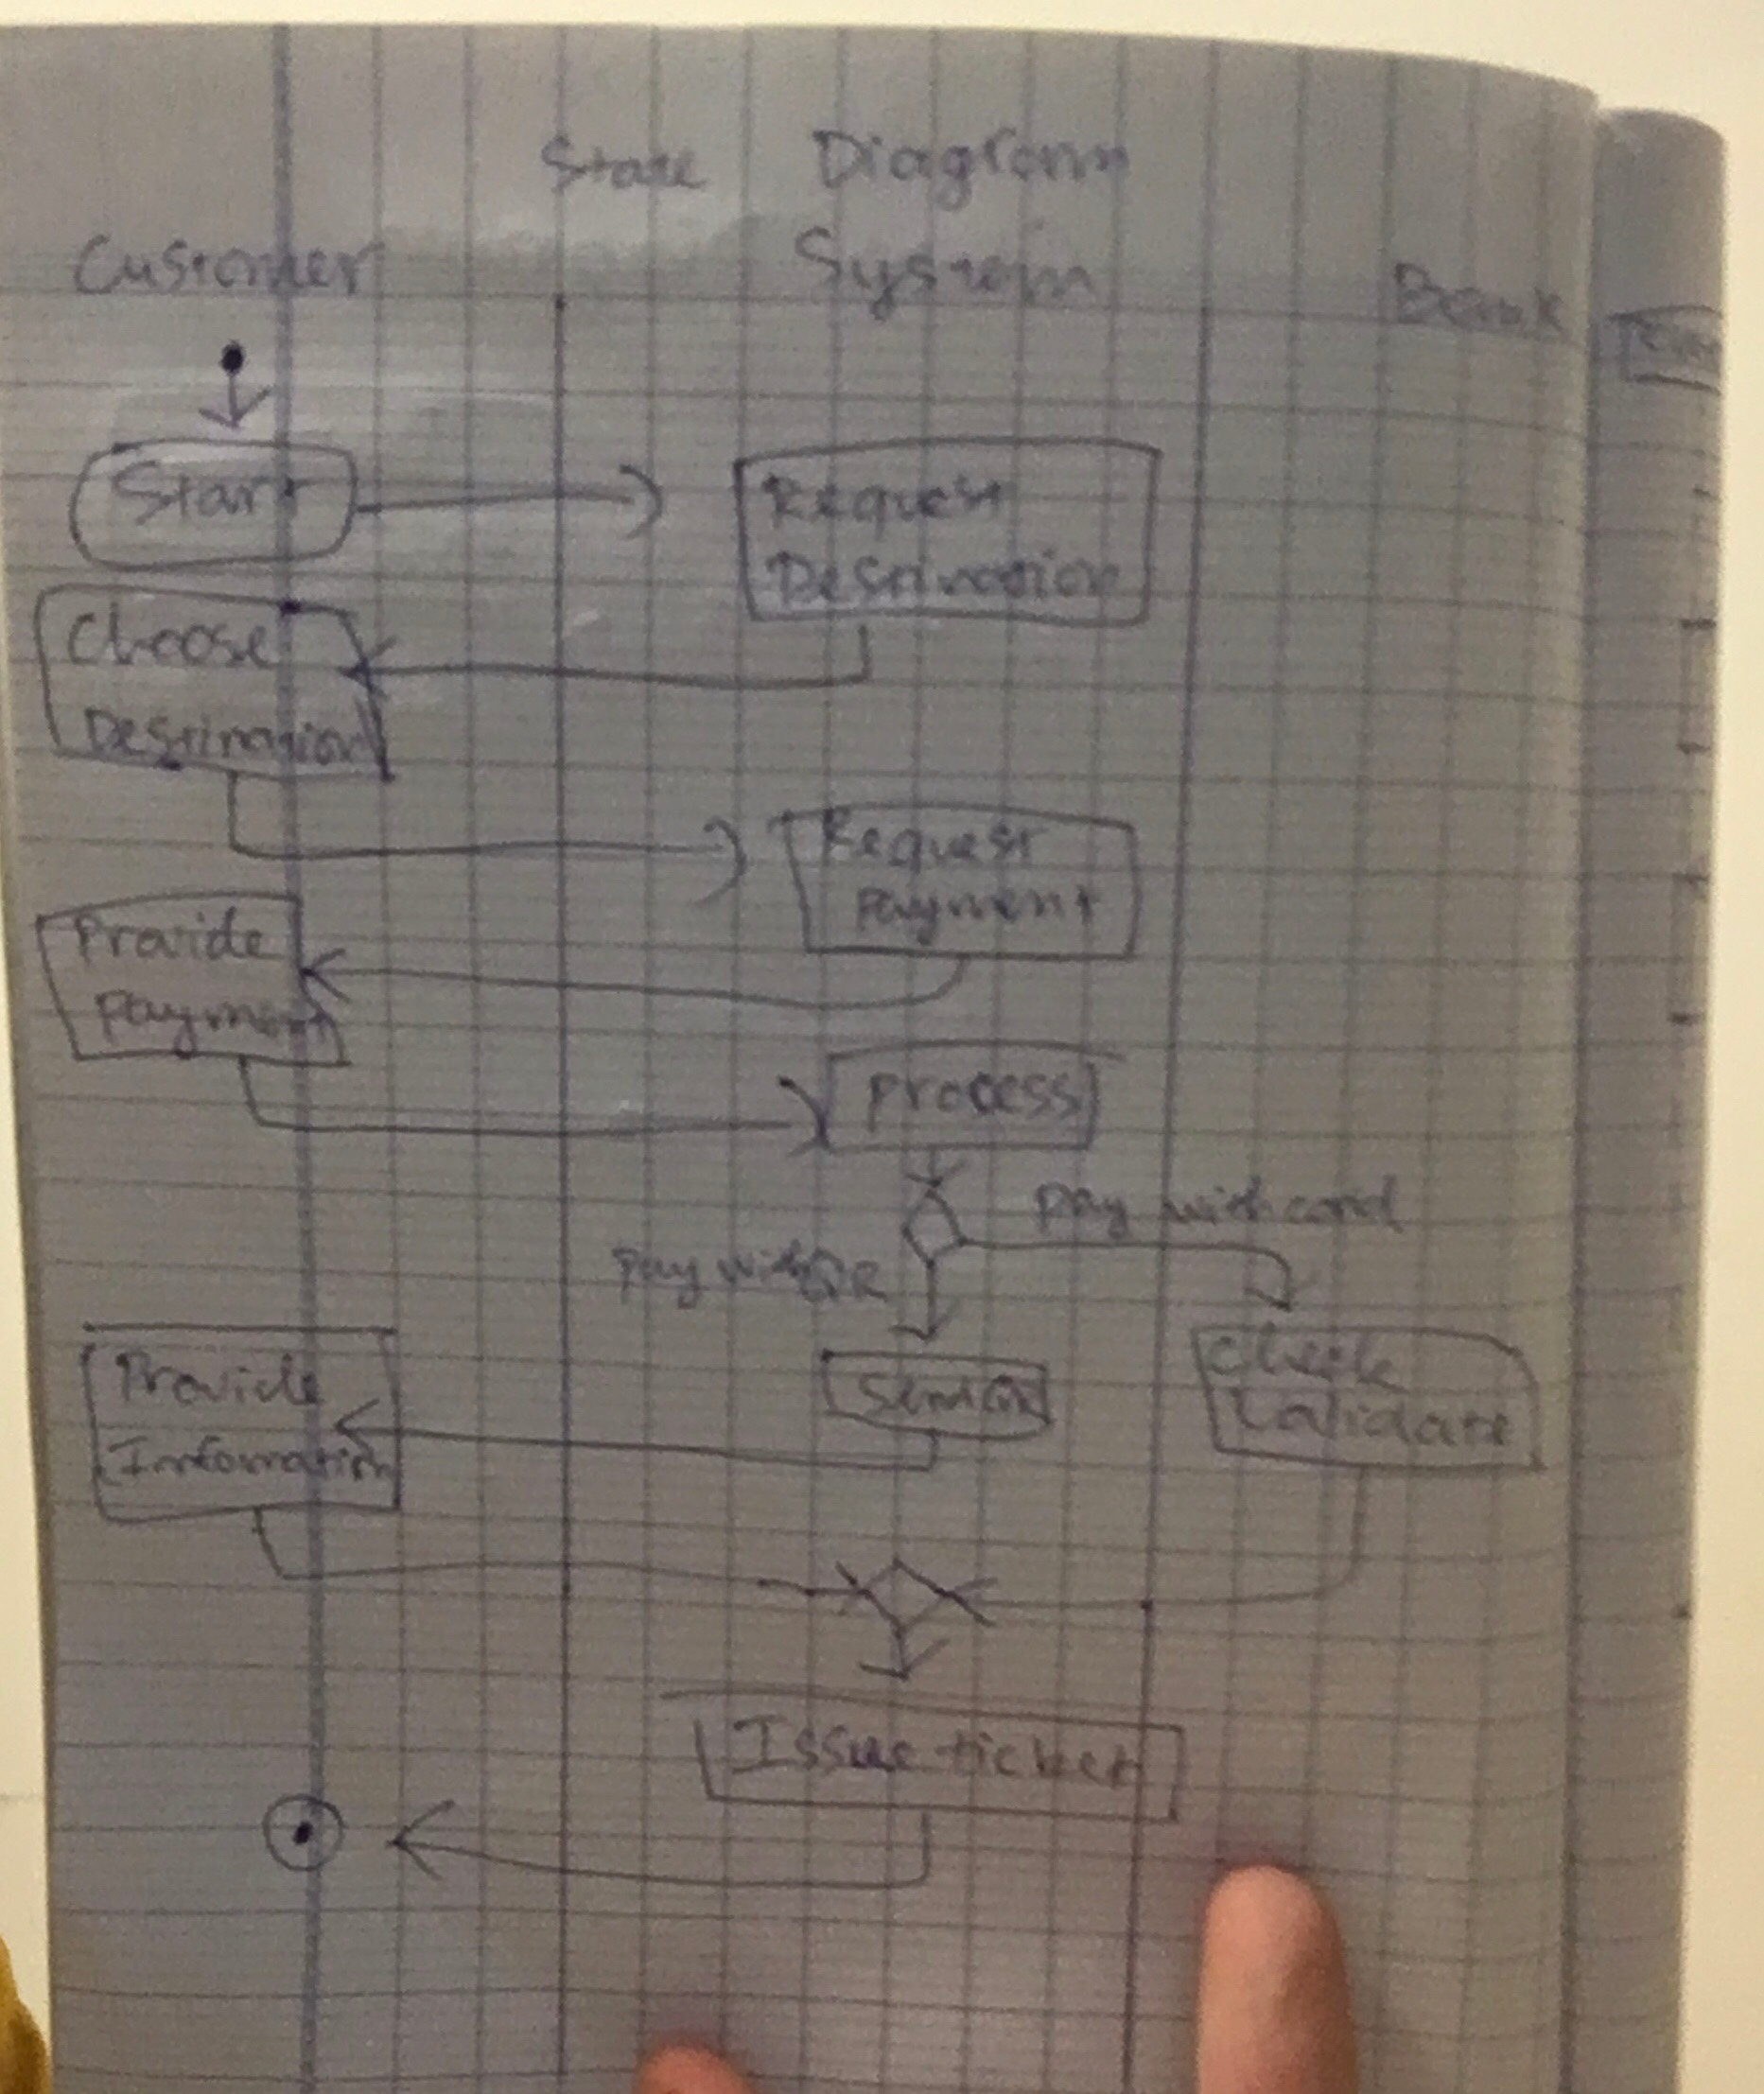 State Diagram
Customer System Bank
Start
Request
Destination
Choose
Destination
Request
Payment
Provide
Payment
Process
Pay with card
Pay with QR
Provide
Information
Check
Validate
Issue ticket